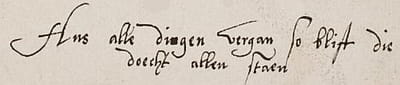 Als alle dingen vergan so blift die
doecht allen staen